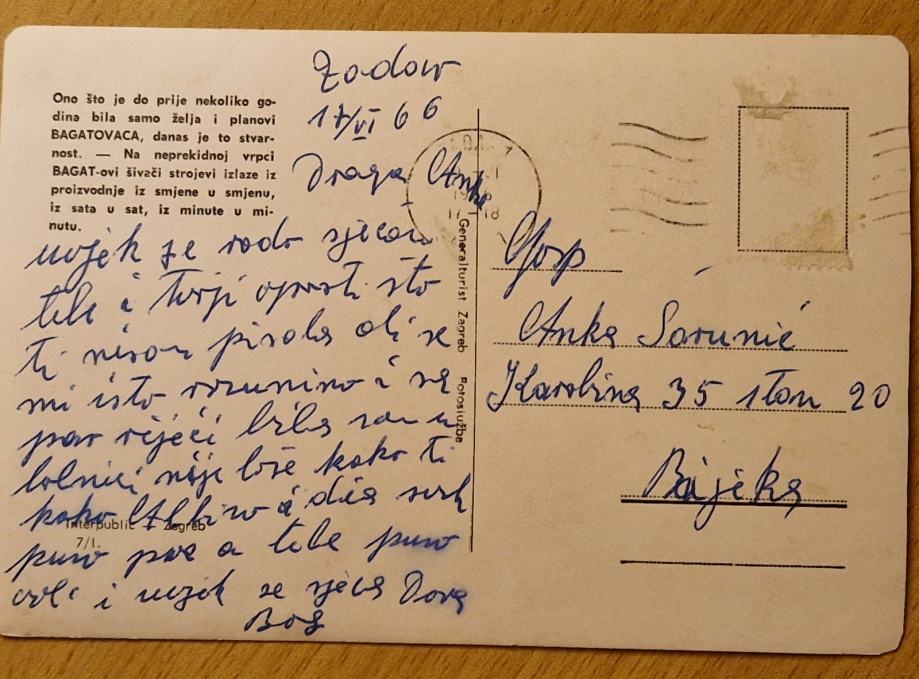 Ono što je do prije nekoliko go-
dina bila samo želja i planovi
BAGATOVACA, danas je to stvar-
nost. — Na neprekidnoj vrpci
BAGAT-ovi šivaći strojevi izlaze iz
proizvodnje iz smjene u smjenu,
iz sata u sat, iz minute u mi-
nutu.
Zadar
17/VI 66
Draga Anka
uvjek se rado sjećam
tebe i tvoji oprosti što
ti nisam pisala ali se
mi isto razumimo i na
par riječi bila sam u
bolnici nije loše kako ti
kako i dica svih
puno poz a tebe puno
voli i uvjek se sjeća Dora
Bog
Generalturist Zagreb Fotoslužba
Interpublic — Zagreb
7/I.
Gosp
Anka Šarunić
Karobina 35 stan 20
Rijeka